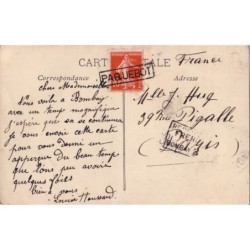 France
CARTE POSTALE
Correspondance
Adresse
PAQUEBOT
chère Mademoiselle
Nous voilà à Bombay
avec un temps magnifique
j'espère que ça se continuera
je vous envoie cette carte
pour vous donner un
aperçue du beau temps
que l'on peu avoir
quelques fois
Bien à vous
Louise
Mlle J. Hug
39 Rue Pigalle
Paris
FRENCH
BOMBAY